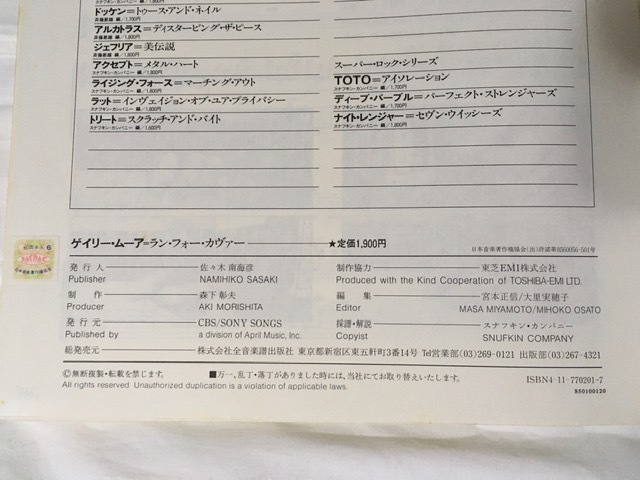 ドッケン=トゥース・アンド・ネイル
斉藤節雄 編/1,700円
アルカトラス=ディスタービング・ザ・ピース
斉藤節雄 編/1,800円
ジェフリア=美伝説
斉藤節雄 編/1,800円
アクセプト=メタル・ハート
スナフキン・カンパニー 編/1,800円
ライジング・フォース=マーチング・アウト
スナフキン・カンパニー 編/1,800円
ラット=インヴェイジョン・オブ・ユア・プライバシー
スナフキン・カンパニー 編/1,800円
トリート=スクラッチ・アンド・バイト
スナフキン・カンパニー 編/1,600円
スーパー・ロック・シリーズ
TOTO=アイソレーション
スナフキン・カンパニー 編/1,700円
ディープ・パープル=パーフェクト・ストレンジャーズ
スナフキン・カンパニー 編/1,700円
ナイト・レンジャー=セヴン・ウイッシーズ
スナフキン・カンパニー 編/1,800円
ゲイリー・ムーア=ラン・フォー・カヴァー ★定価1,900円
日本音楽著作権協会(出)許諾第8560056-501号
発行人 佐々木 南海彦
Publisher NAMIHIKO SASAKI
制作 森下 彰夫
Producer AKI MORISHITA
発行元 CBS/SONY SONGS
Published by a division of April Music, Inc.
制作協力 東芝EMI株式会社
Produced with the Kind Cooperation of TOSHIBA-EMI LTD.
編集 宮本正信/大里実穂子
Editor MASA MIYAMOTO/MIHOKO OSATO
採譜・解説 スナフキン・カンパニー
Copyist SNUFKIN COMPANY
総発売元 株式会社全音楽譜出版社 東京都新宿区東五軒町3番14号 Tel営業部(03)269-0121 出版部(03)267-4321
©無断複製・転載を禁じます。 ■万一、乱丁・落丁がありました時には、当社にてお取り替えいたします。
All rights reserved Unauthorized duplication is a violation of applicable laws.
ISBN4-11-770201-7
850100120